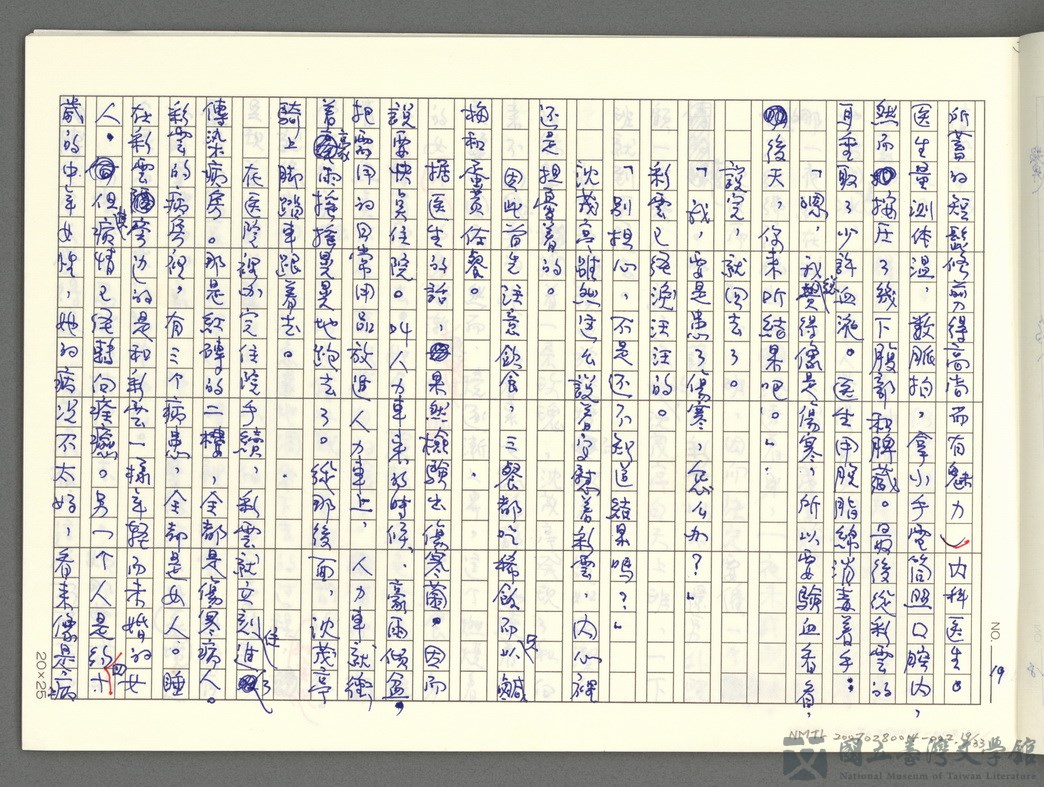 NO. 19
所蓄的短髭修剪得高尚而有魅力內科医生。
医生量測体溫，数脈拍，拿小手電筒照口腔內，
然而按压了幾下腹部和脾臟。最後從彩雲的
耳垂取了少許血液。医生用脫脂綿消毒着手：
「嗯，我總覺得像是傷寒，所以要驗血看看，
後天，你来听結果吧。」
說完，就回去了。
「我，要是患了傷寒，怎么办？」
彩雲已経淚汪汪的。
「別担心，不是还不知道結果嗎？」
沈茂亭雖然这么說着安慰着彩雲，內心裡
还是担憂着的。
因此首先注意飲食，三餐都吃稀飯而以只鹹
梅和醬黃佐餐。
据医生的話，果然檢驗出傷寒菌。因而
說要快矣住院。叫人力車来的時候，豪雨傾盆，
把需用的日常用品放進人力車上，人力車就衝
着豪雨搖搖晃晃地跑去了。從那後面，沈茂亭
騎上脚踏車跟着去。
在医院裡办完住院手續，彩雲就立刻進住了
傳染病房。那是紅磚的二樓，全都是傷寒病人。
彩雲的病房裡，有三个病患，全都是女人。睡
在彩雲旁边的是和彩雲一樣年輕而未婚的女
人。但病情已経轉向痊癒。另一个人是約四十
歲的中年女性，她的病況不太好，看来像是病
20×25
NMTL 20070280014-002 19/33
國立臺灣文學館
National Museum of Taiwan Literature